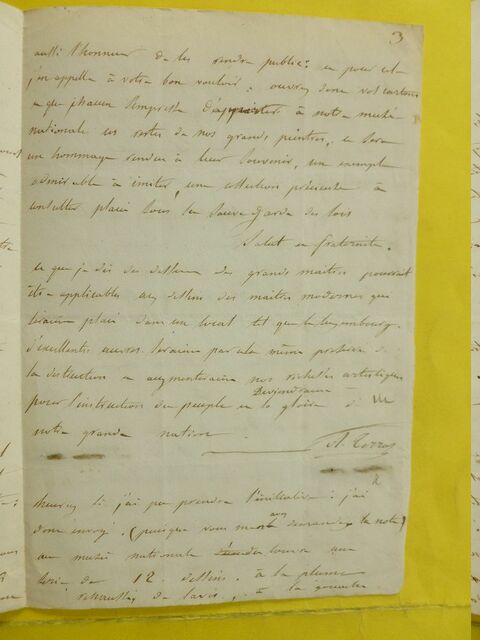 3
aussi l'honneur de les rendre public: en pour cela
j'en appelle à votre bon vouloir: ouvrez donc vos cartons
e que chacun s'empresse d'apporter à notre musée
national les restes de nos grands peintres, ce sera
un hommage rendu à leur souvenir, un exemple
admirable à imiter, une collection précieuse à
consulter placée sous la sauve garde des lois
Salut en fraternité.
ce que je dis des dessins des grands maîtres pourrait
être applicables aux dessins des maîtres modernes que
seraient placés dans un local tel que le Luxembourg.
d'excellentes œuvres seraient par cela même préservées de
la destruction en augmenteraient nos richesses artistiques
deviendraient
pour l'instruction du peuple en la gloire de
notre grande nation.
heureux si j'ai pu prendre l'initiative: j'ai
avez
donc envoyé. (puisque vous m'en demandez la note)
au musée national du louvre une
série de 12 dessins. à la plume
rehaussés de lavis, à la gouache